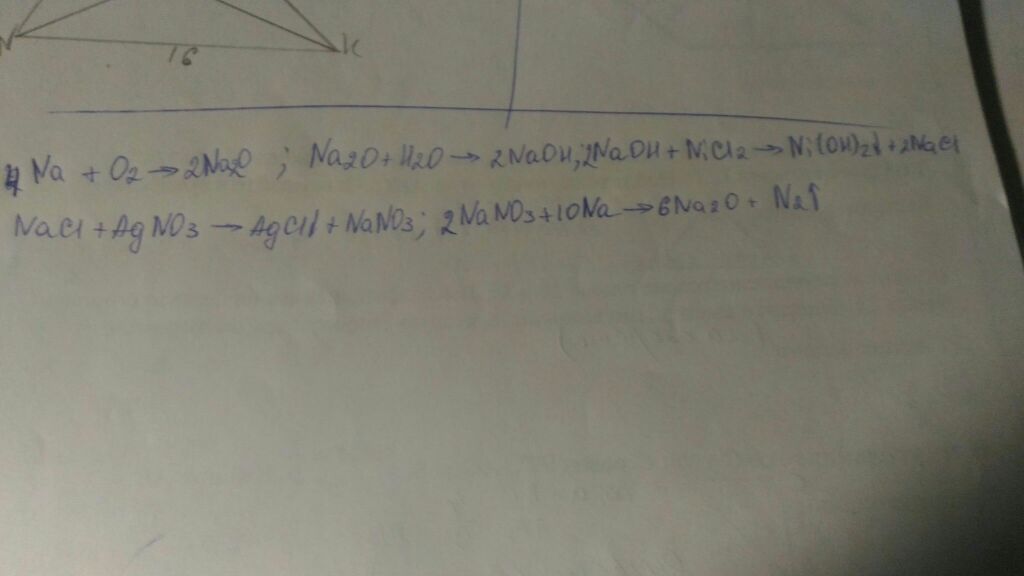 N 16 K
4Na + O2 → 2Na2O ; Na2O + H2O → 2NaOH; 2NaOH + NiCl2 → Ni(OH)2↓ + 2NaCl
NaCl + AgNO3 → AgCl↓ + NaNO3; 2NaNO3 + 10Na → 6Na2O + N2↑